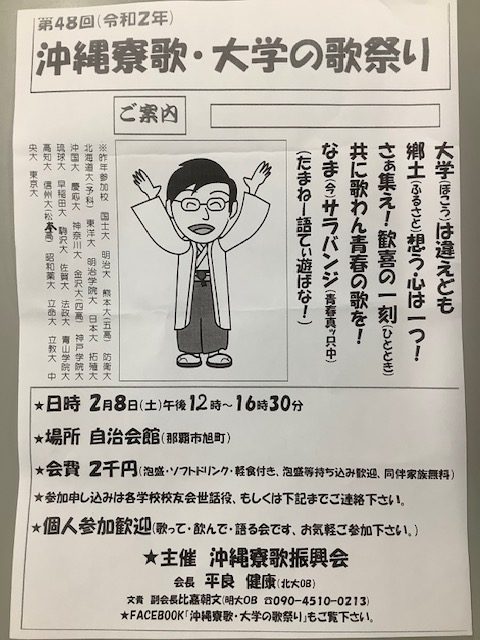 第48回(令和2年)
沖縄寮歌・大学の歌祭り
ご案内
大学(ぼこう)は違えども
郷土(ふるさと)想う心は一つ!
さぁ集え!歓喜の一刻(ひととき)
共に歌わん青春の歌を!
なま(今)サラバンジ(青春真ッ只中)
(たまねー語てぃ遊ばな!)
※昨年参加校 国士大 明治大 熊本大(五高) 防衛大
北海道大(予科) 東洋大 明治学院大 日本大 拓殖大
沖国大 慶応大 神奈川大 金沢大(四高) 神戸学院大
琉球大 早稲田大 駒沢大 佐賀大 法政大 青山学院大
高知大 信州大(松高) 昭和薬大 立命大 立教大 中
央大 東京大
★日時 2月8日(土)午後12時~16時30分
★場所 自治会館(那覇市旭町)
★会費 2千円(泡盛・ソフトドリンク・軽食付き、泡盛等持ち込み歓迎、同伴家族無料)
★参加申し込みは各学校校友会世話役、もしくは下記までご連絡下さい。
★個人参加歓迎(歌って・飲んで・語る会です、お気軽ご参加下さい。)
★主催 沖縄寮歌振興会
会長 平良 健康(北大OB)
文責 副会長比嘉朝文(明大OB ☎090-4510-0213)
★FACEBOOK「沖縄寮歌・大学の歌祭り」もご覧下さい。